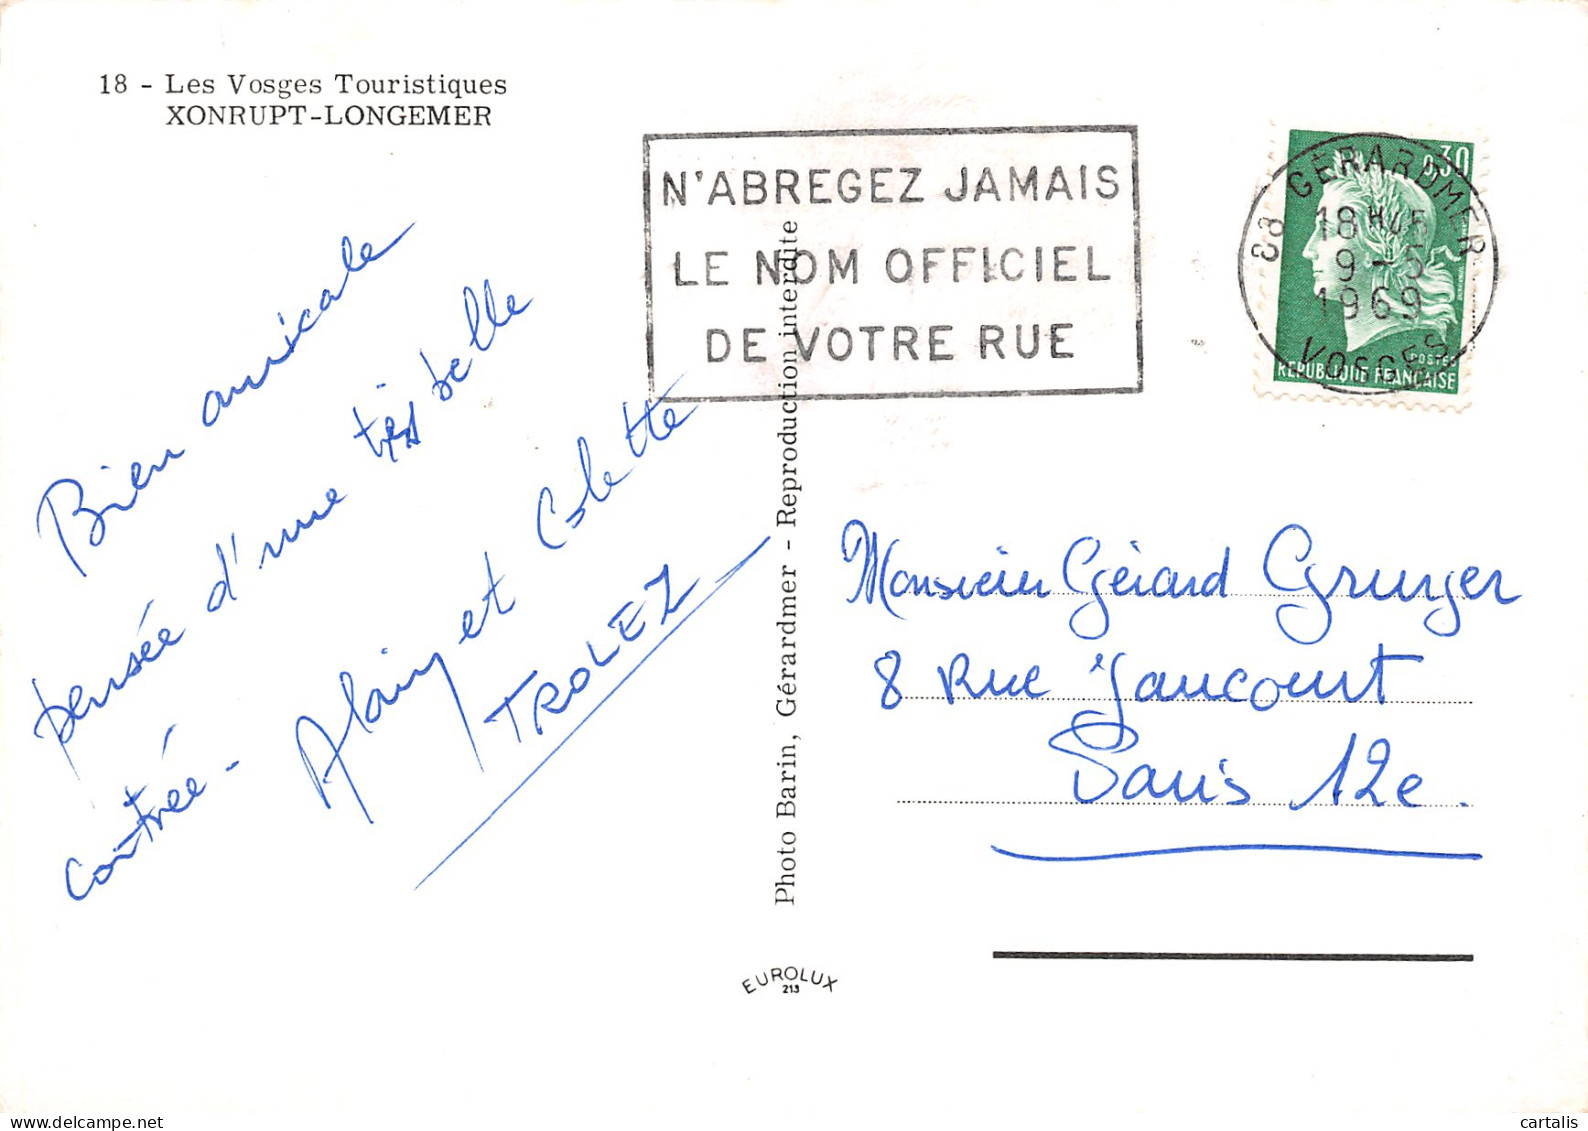 18 - Les Vosges Touristiques
XONRUPT-LONGEMER
N'ABREGEZ JAMAIS
LE NOM OFFICIEL
DE VOTRE RUE
88 GERARDMER
18H
9-5
1969
VOSGES
0,30
POSTES
REPUBLIQUE FRANÇAISE
Bien amicale
pensée d'une très belle
contrée -
Alain et Colette
TROLEZ
Photo Barin, Gérardmer - Reproduction interdite
EUROLUX
213
Monsieur Gérard
8 Rue Jaucourt
Paris 12e.
cartalis